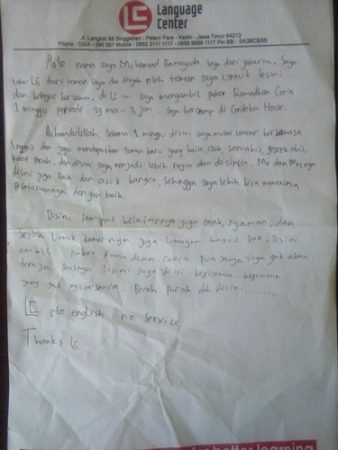 LC Language
Center
Jl. Langkat 88 Singgahan - Pelem Pare - Kediri - Jawa Timur 64213
Halo nama saya Muhamad Ramayuda, saya dari jakarta. Saya
tahu LC dari teman saya dan diajak oleh teman saya untuk kesini
dan belajar bersama, di LC ini saya mengambil paket Ramadhan Ceria
1 minggu periode 29 mei - 3 juni. Saya bercamp di Cordoba House.
Alhamdulillah selama 1 minggu disini saya mulai lancar berbahasa
inggris dan juga mendapatkan teman baru yang baik, asik,
dan disini saya menjadi lebih rajin dan disiplin. Mr dan Ms nya
disini juga baik dan asik banget, sehingga saya lebih bisa menerima
pelajarannya dengan baik.
Disini tempat belajarnya juga enak, nyaman, dan
sejuk. Untuk kamarnya juga bagus kok. Disini
ambil paket Ramadhan ceria puasanya juga gak akan
terasa disini juga diisi
yang gak ngebosenin. Pokoknya disini........
LC no english no service
Thanks LC
better learning